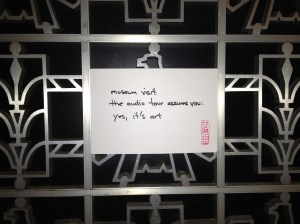 museum visit
the audio tour assures you:
yes, it's art